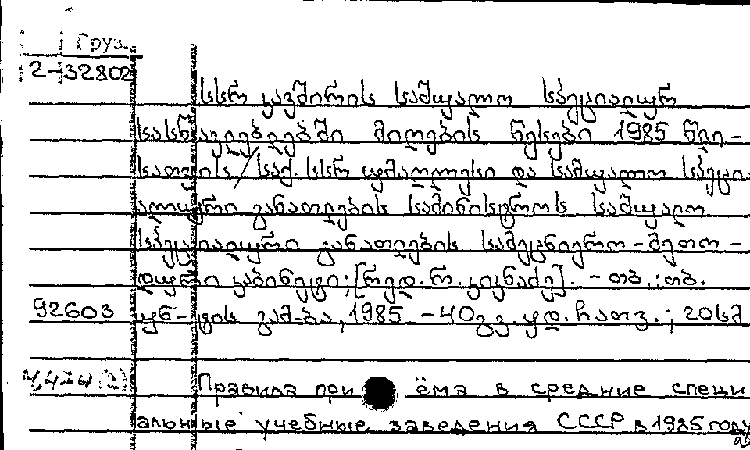 Груз.
2-32802
სსრ კავშირის საშუალო სპეციალურ
სასწავლებლებში მიღების წესები 1985 წლი-
სათვის / საქ. სსრ უმაღლესი და საშუალო სპეცი-
ალური განათლების სამინისტროს საშუალო
სპეციალური განათლების სამეცნიერო-მეთო-
დური კაბინეტი; [რედ. რ. კიკნაძე]. - თბ.: თბ.
92603 უნ-ტის გამ-ბა, 1985. - 40გვ. ყდ. ჩათვ.; 20სმ
Правила приёма в средние специ
альные учебные заведения СССР в 1985 году